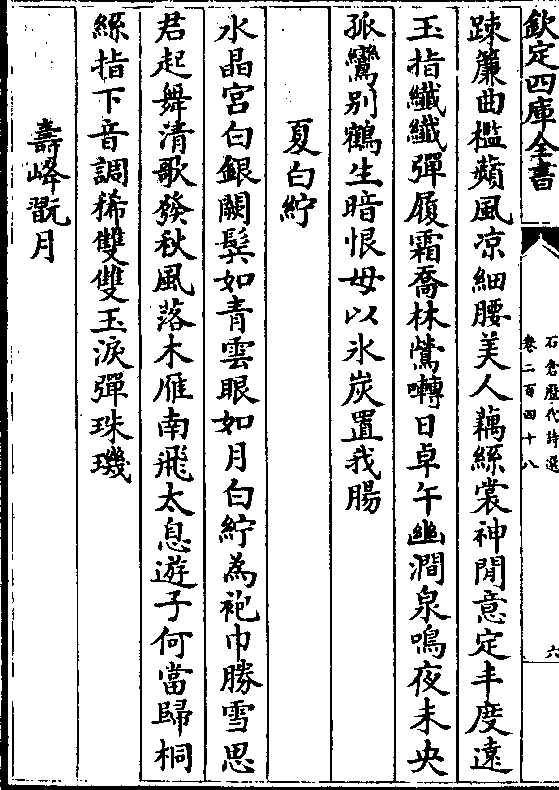 欽定四庫全書
石倉歷代詩選
卷二百四十八
六
踈簾曲檻蘋風凉細腰美人藕絲裳神閒意定丰度遠
玉指纎纎彈履霜喬林鶯囀日卓午幽澗泉鳴夜未央
孤鸞别鶴生暗恨毋以氷炭置我腸
夏白紵
水晶宫白銀闕鬂如青雲眼如月白紵為袍巾勝雪思
君起舞清歌發秋風落木雁南飛太息遊子何當歸桐
絲指下音調稀雙雙玉淚彈珠璣
壽峰翫月